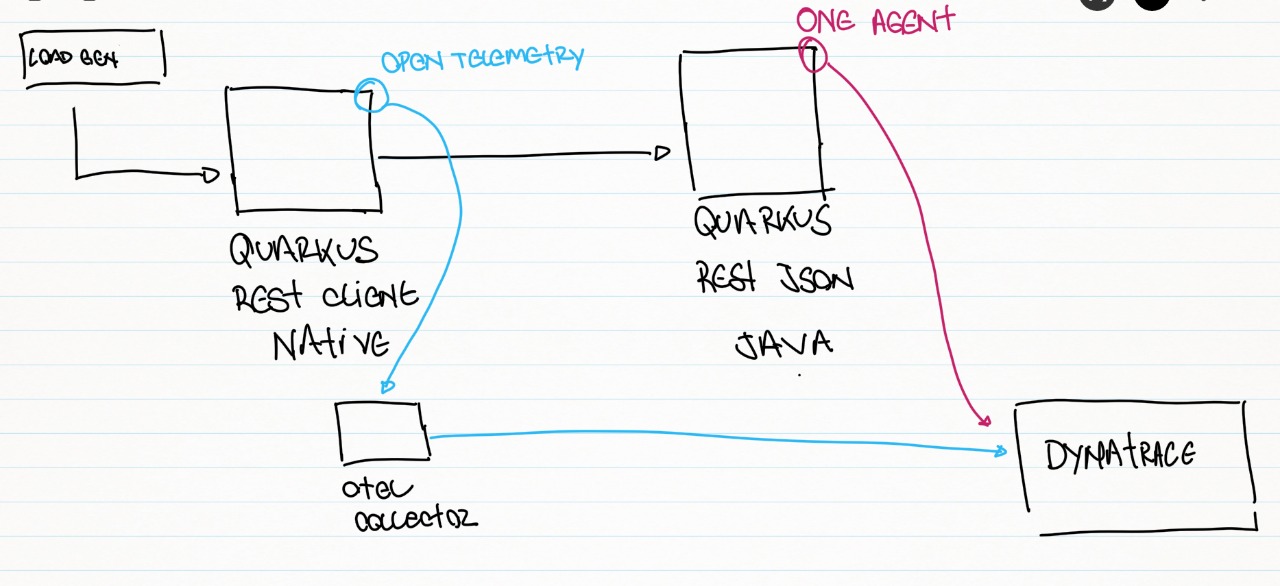 LOAD GEN
OPEN TELEMETRY
ONE AGENT
QUARKUS
REST CLIENT
NATIVE
QUARKUS
REST JSON
JAVA
OTEL
COLLECTOR
DYNATRACE